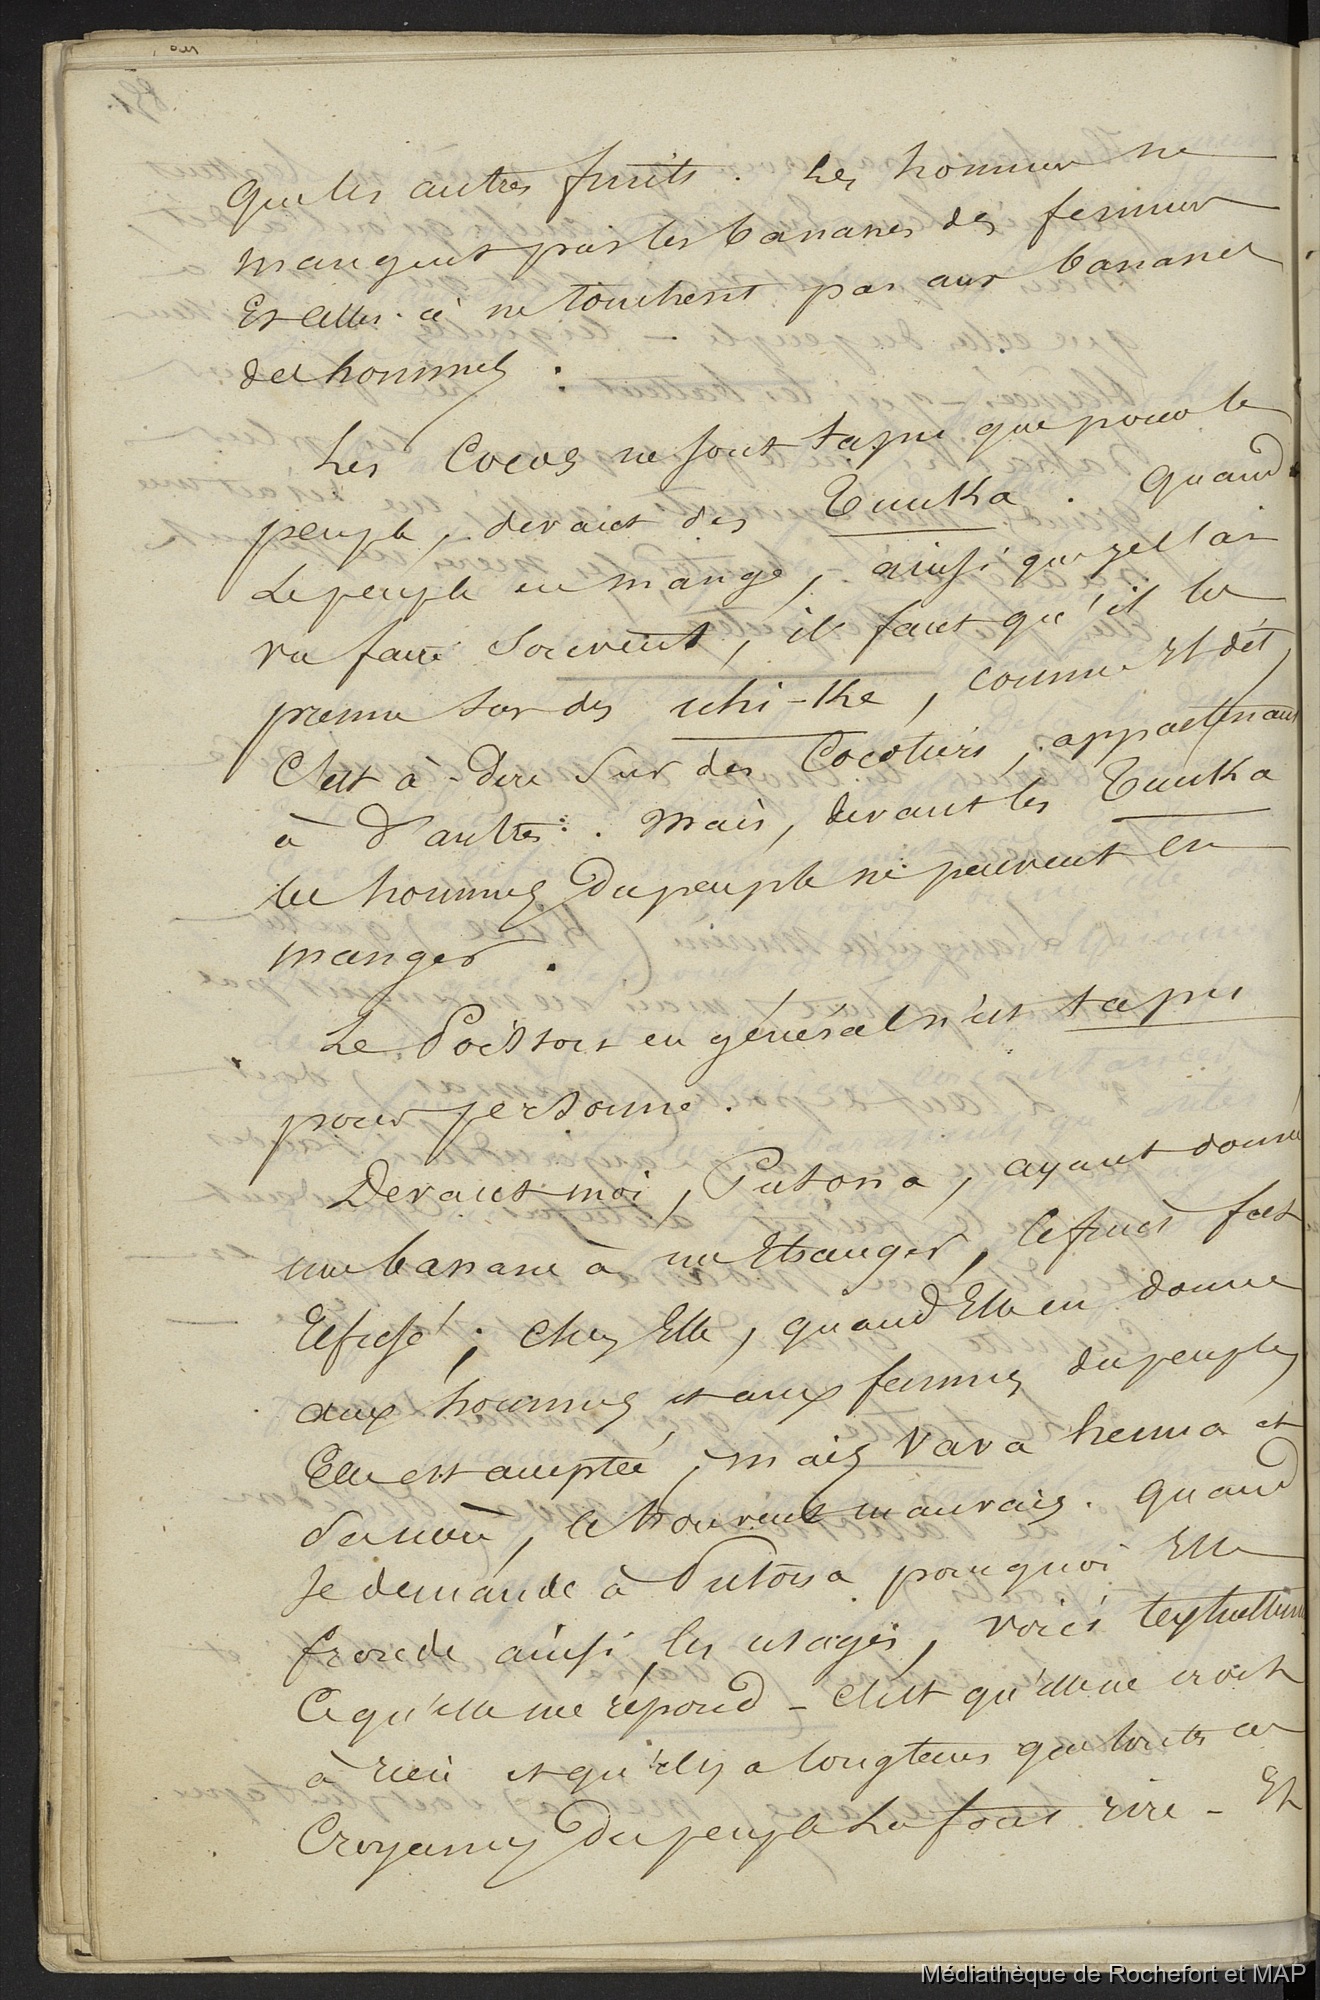 que les autres fruits. Les hommes ne
mangent pas les bananes des femmes
Et elles-ci ne touchent pas aux bananes
des hommes.
Les Cocos ne sont tapu que pour le
peuple, devant des Tuuka. Quand
Le peuple en mange, ainsi que je l'ai
vu faire souvent, il faut qu'il les
prenne sur des uhi-ke, comme Il dit,
C'est à-dire sur des Cocotiers, appartenant
à d'autres. Mais, devant les Tuuka
les hommes du peuple ne peuvent en
manger.
Le Poisson en général n'est tapu
pour personne.
Devant moi, Putona, ayant donné
une banane à un Etranger, le fruit fut
Refusé; chez Elle, quand Elle en donne
aux hommes et aux femmes du peuple,
Elle est acceptée, mais Vavahenua et
sa mère, le trouvent mauvais. Quand
Je demande à Putona pourquoi Elle
fronde ainsi les usages, voici textuellement
Ce qu'elle me répond - C'est qu'elle ne croit
à rien et qu'il y a longtems que toutes ces
Croyances du peuple La font rire - Et
Médiathèque de Rochefort et MAP